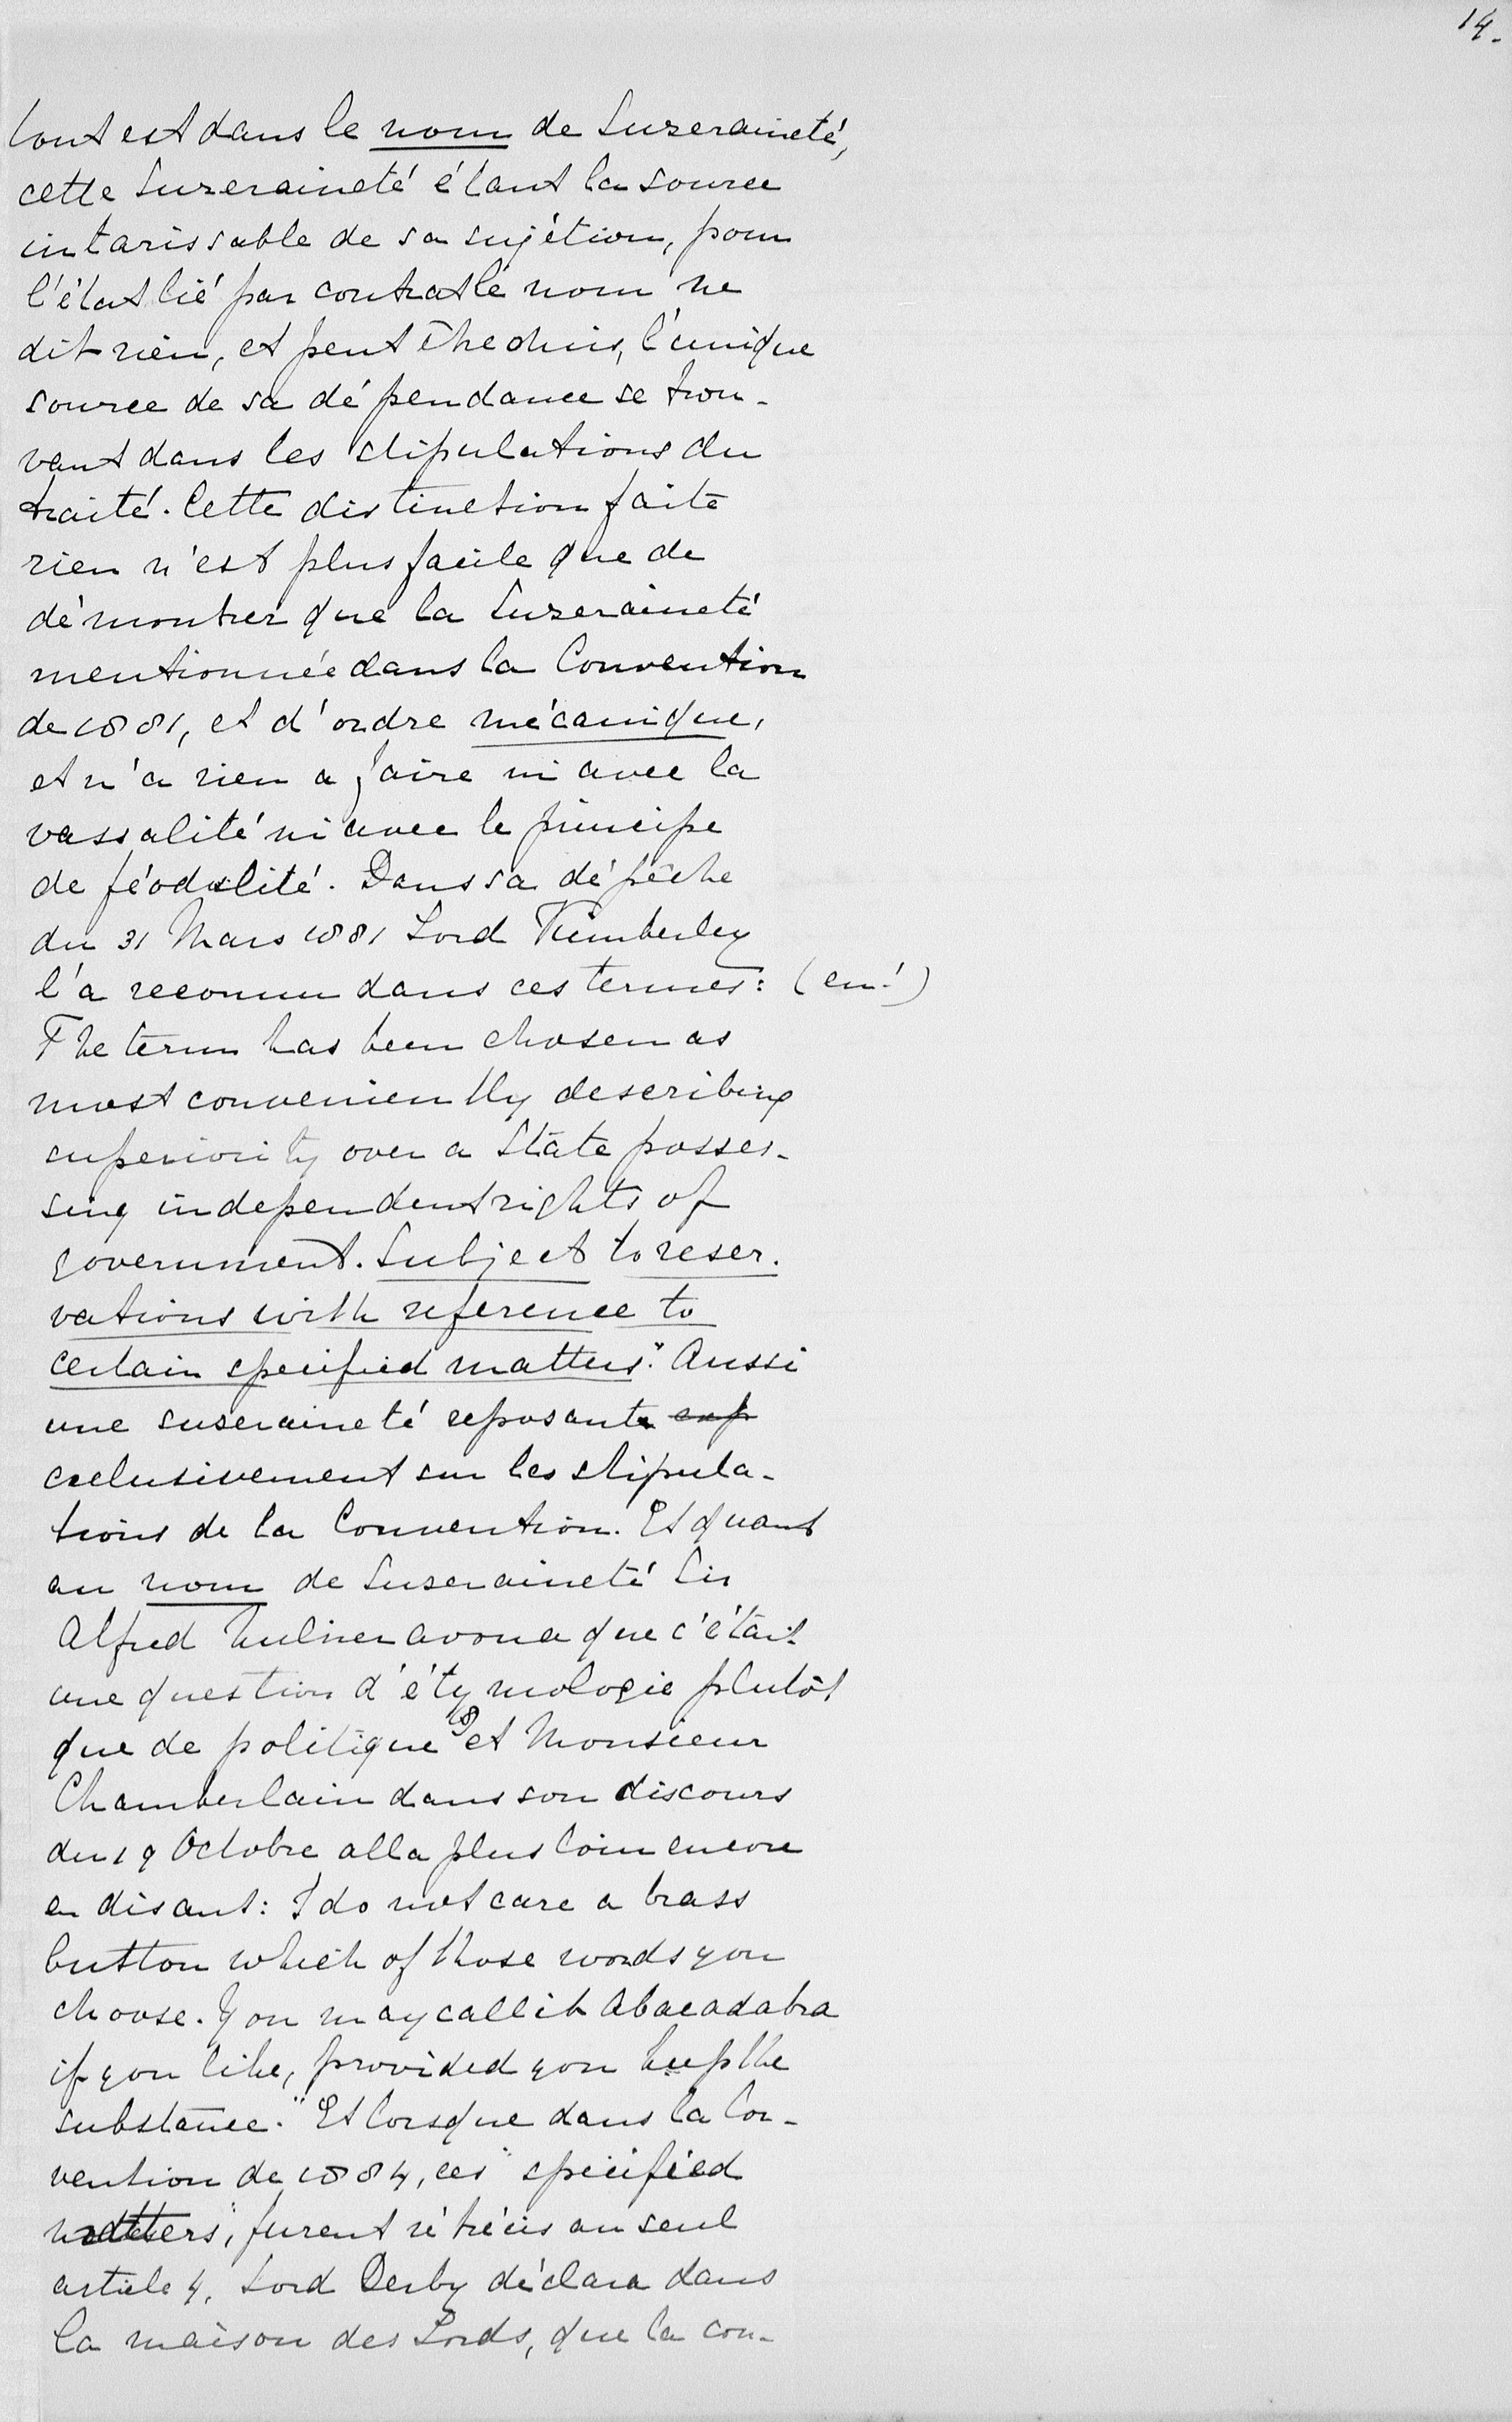 14.
tout est dans le nom de Suzeraineté,
cette Suzeraineté étant la source
intarissable de sa sujétion, pour
l'état lié par contrat le nom ne
dit rien, et peut être omis, l'unique
source de sa dépendance se trou-
vant dans les stipulations du
traité. Cette distinction faite
rien n'est plus facile que de
démontrer que la Suzeraineté
mentionnée dans la Convention
de 1881, et d'ordre mécanique,
et n'a rien a faire ni avec la
vassalité ni avec le principe
de féodalité. Dans sa dépêche
du 31 Mars 1881 Lord Kimberley
l'a reconnu dans ces termes:
The term has been chosen as
most conveniently describing
superiority over a State posses-
sing independent rights of
government. Subject to reser.
vations with reference to
certain specified matters." Aussi
une suseraineté reposante exp
exclusivement sur les stipula-
tions de la Convention. Et quant
au nom de Suseraineté Sir
Alfred Milner avoua que c'était
une question d'étymologie plutôt
que de politique (8) et Monsieur
Chamberlain dans son discours
du 19 Octobre alla plus loin encore
en disant: I do not care a brass
button which of those words you
choose. You may call it Abacadabra
if you like, provided you keep the
substance." Et lorsque dans la Con-
vention de 1884, ces "specified
matters", furent rétrécis au seul
article 4, Lord Derby déclara dans
la maison des Lords, que la con-